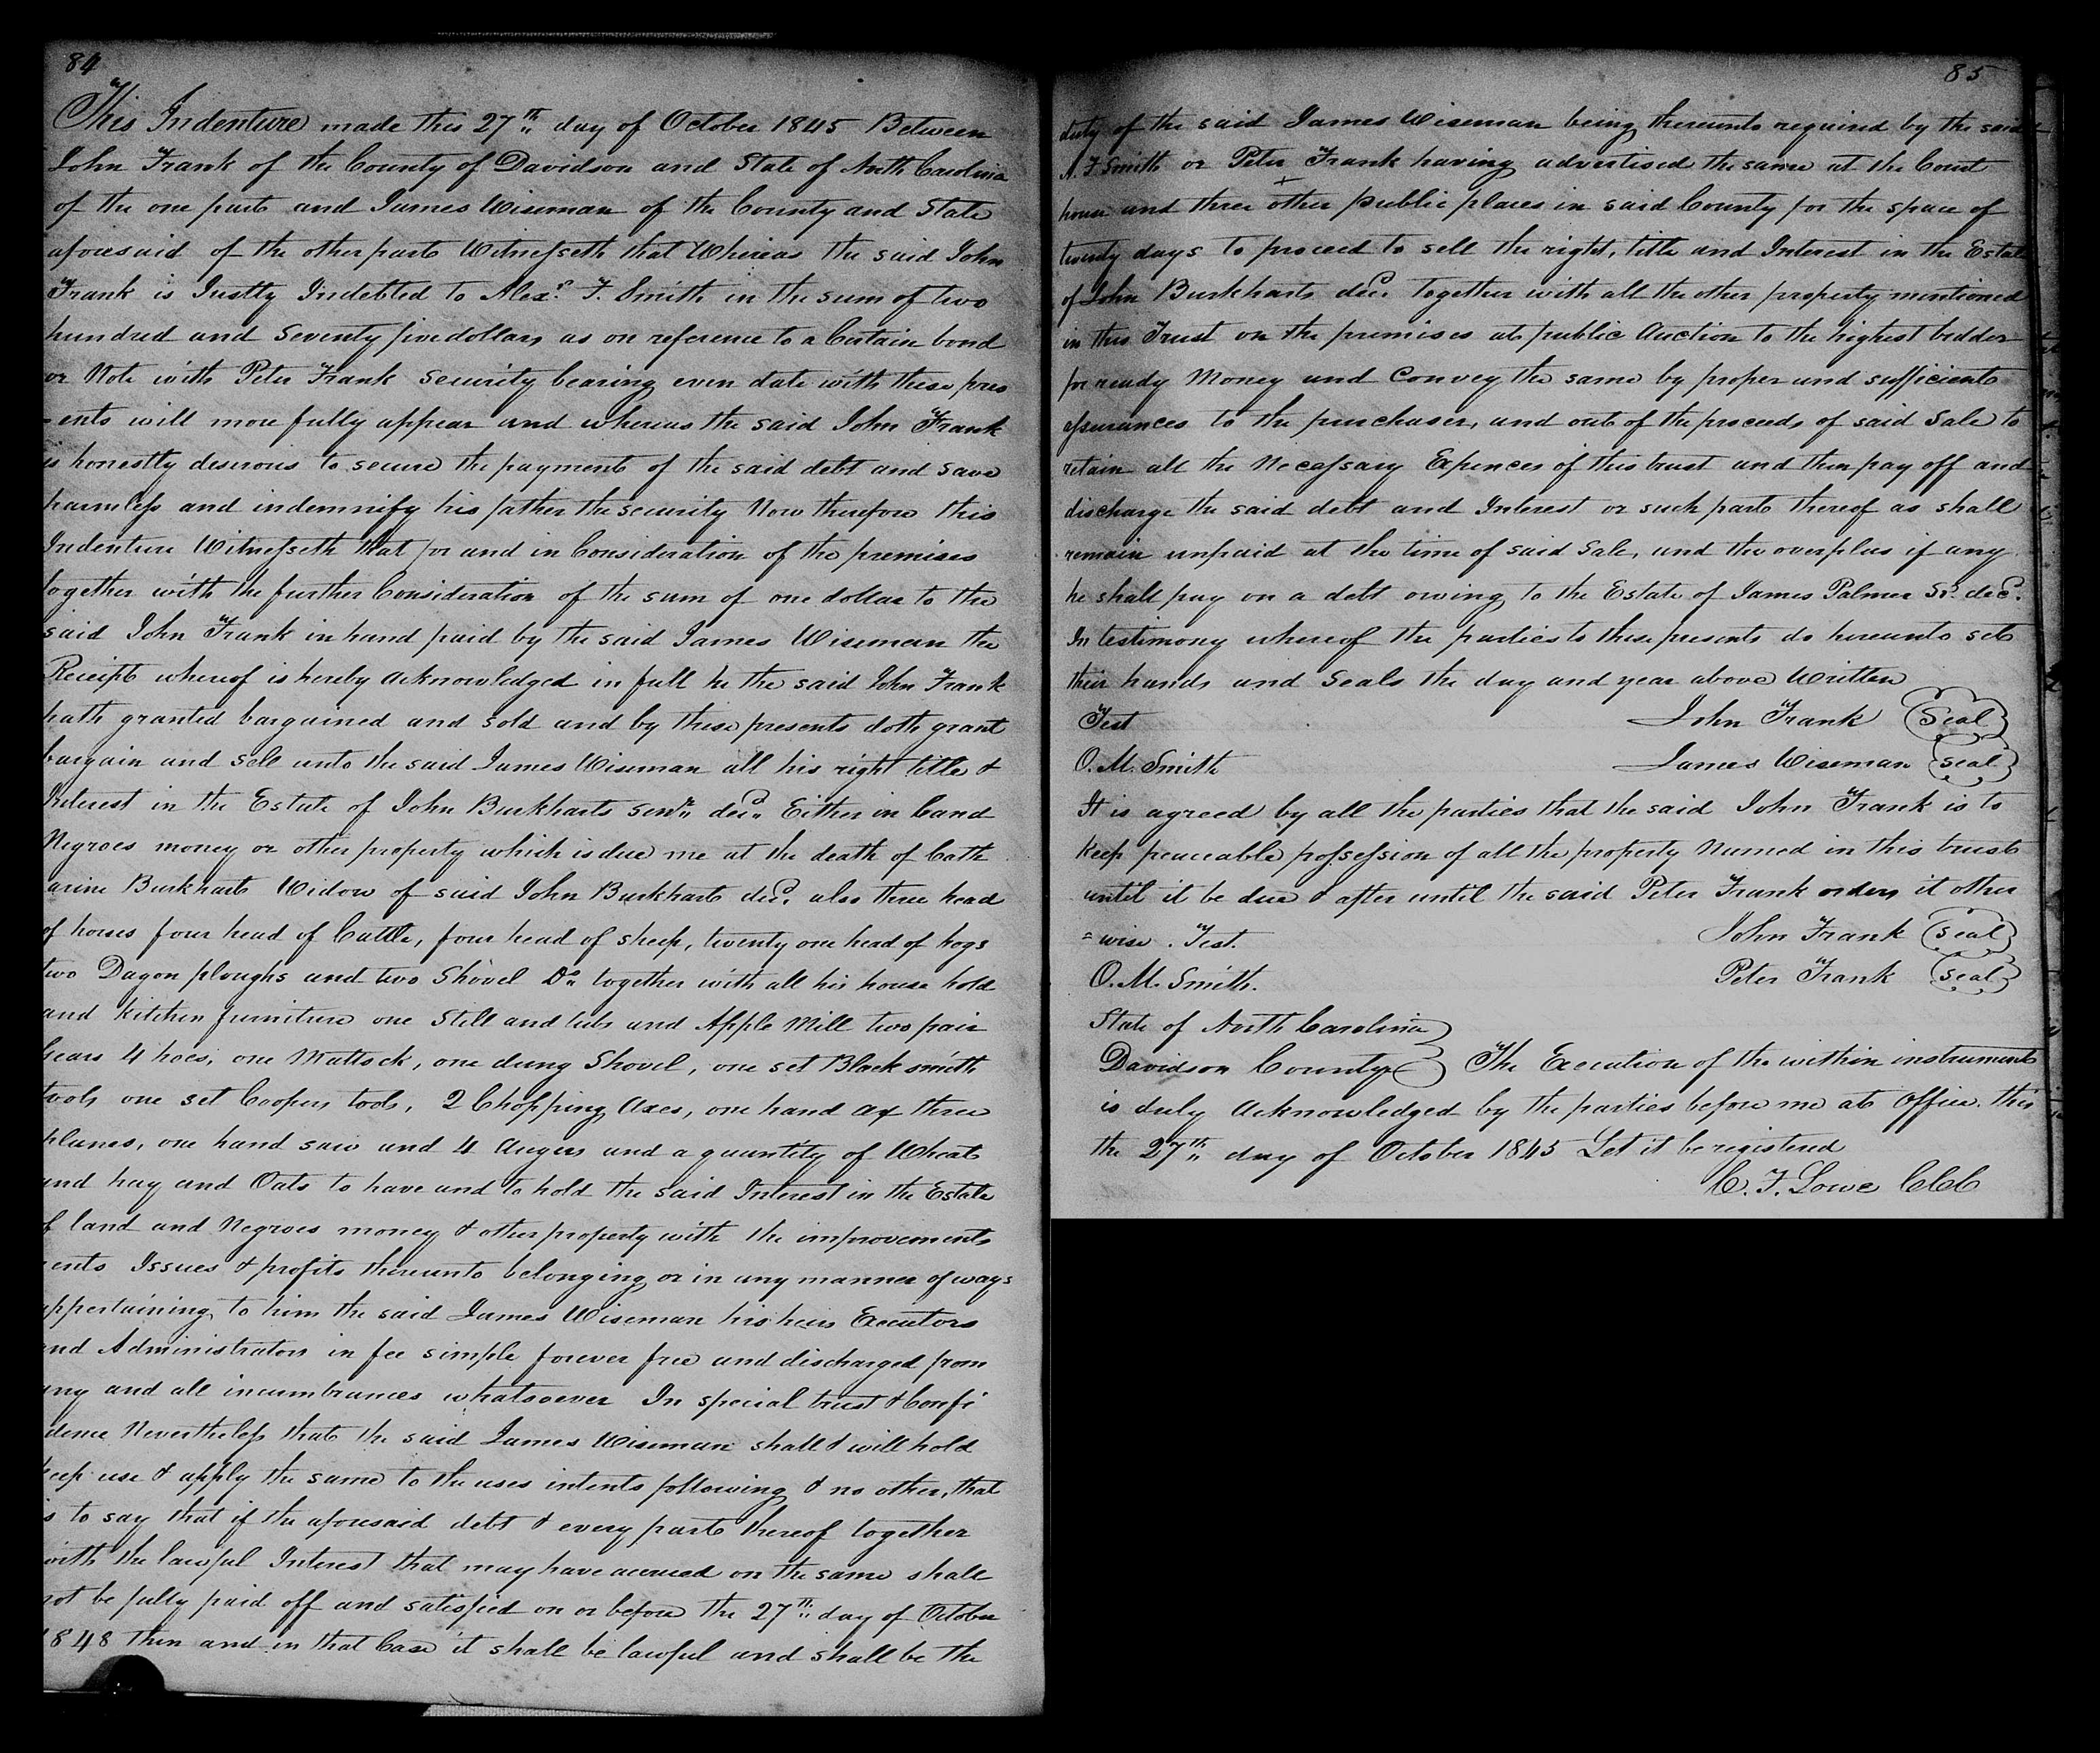 84
This Indenture made this 27th day of October 1845 Between
John Frank of the County of Davidson and State of North Carolina
of the one part and James Wiseman of the County and State
aforesaid of the other part Witnesseth that Whereas the said John
Frank is Justly Indebted to Alexr. F. Smith in the sum of two
hundred and Seventy five dollars as on reference to a Certain bond
or Note with Peter Frank Security bearing even date with these pres
-ents will more fully appear and whereas the said John Frank
is honestly desirous to secure the payment of the said debt and save
harmless and indemnify his father the security Now therefore this
Indenture Witnesseth that for and in Consideration of the premises
together with the further Consideration of the sum of one dollar to the
said John Frank in hand paid by the said James Wiseman the
Receipt whereof is hereby acknowledged in full he the said John Frank
hath granted bargained and sold and by these presents doth grant
bargain and sell unto the said James Wiseman all his right title &
Interest in the Estate of John Burkhart senr. decd. Either in Land
Negroes money or other property which is due me at the death of Cath
arine Burkhart Widow of said John Burkhart decd. also three head
of horses four head of Cattle, four head of sheep, twenty one head of hogs
two Dagon ploughs and two Shovel Do. together with all his house hold
and kitchen furniture one Still and tubs and Apple Mill two pair
Gears 4 hoes, one Mattock, one dung Shovel, one set Black smith
tools one set Coopers tools, 2 Chopping Axes, one hand ax three
planes, one hand saw and 4 Augers and a quantity of Wheat
and hay and Oats to have and to hold the said Interest in the Estate
of land and Negroes money & other property with the improvements
ents Issues & profits thereunto belonging or in any manner of ways
appertaining to him the said James Wiseman his heirs Executors
and Administrators in fee simple forever free and discharged from
any and all incumbrances whatsoever In special trust & Confi
dence Nevertheless that the said James Wiseman shall & will hold
keep use & apply the same to the uses intents following & no other, that
is to say that if the aforesaid debt & every part thereof together
with the lawful Interest that may have accrued on the same shall
not be fully paid off and satisfied on or before the 27th day of October
1848 then and in that Case it shall be lawful and shall be the
85
duty of the said James Wiseman being thereunto required by the said
A. F Smith or Peter Frank having advertised the same at the Court
house and three other public places in said County for the space of
twenty days to proceed to sell the right, title and Interest in the Estate
of John Burkhart decd. together with all the other property mentioned
in this Trust on the premises at public Auction to the highest bidder
for ready Money and Convey the same by proper and sufficient
assurances to the purchaser, and out of the proceeds of said Sale to
retain all the Necessary Expences of this trust and then pay off and
discharge the said debt and Interest or such part thereof as shall
remain unpaid at the time of said Sale, and the overplus if any
he shall pay on a debt owing to the Estate of James Palmer Sr. decd.
In testimony whereof the parties to these presents do hereunto set
their hands and Seals the day and year above Written
Test John Frank (Seal)
O. M. Smith James Wiseman (Seal)
It is agreed by all the parties that the said John Frank is to
keep peaceable possession of all the property Named in this trust
until it be due & after until the said Peter Frank orders it other
=wise. Test. John Frank (Seal)
O. M. Smith. Peter Frank (Seal)
State of North Carolina
Davidson County The Execution of the within instrument
is duly Acknowledged by the parties before me at Office this
the 27th day of October 1845 Let it be registered
C. F. Lowe CCC